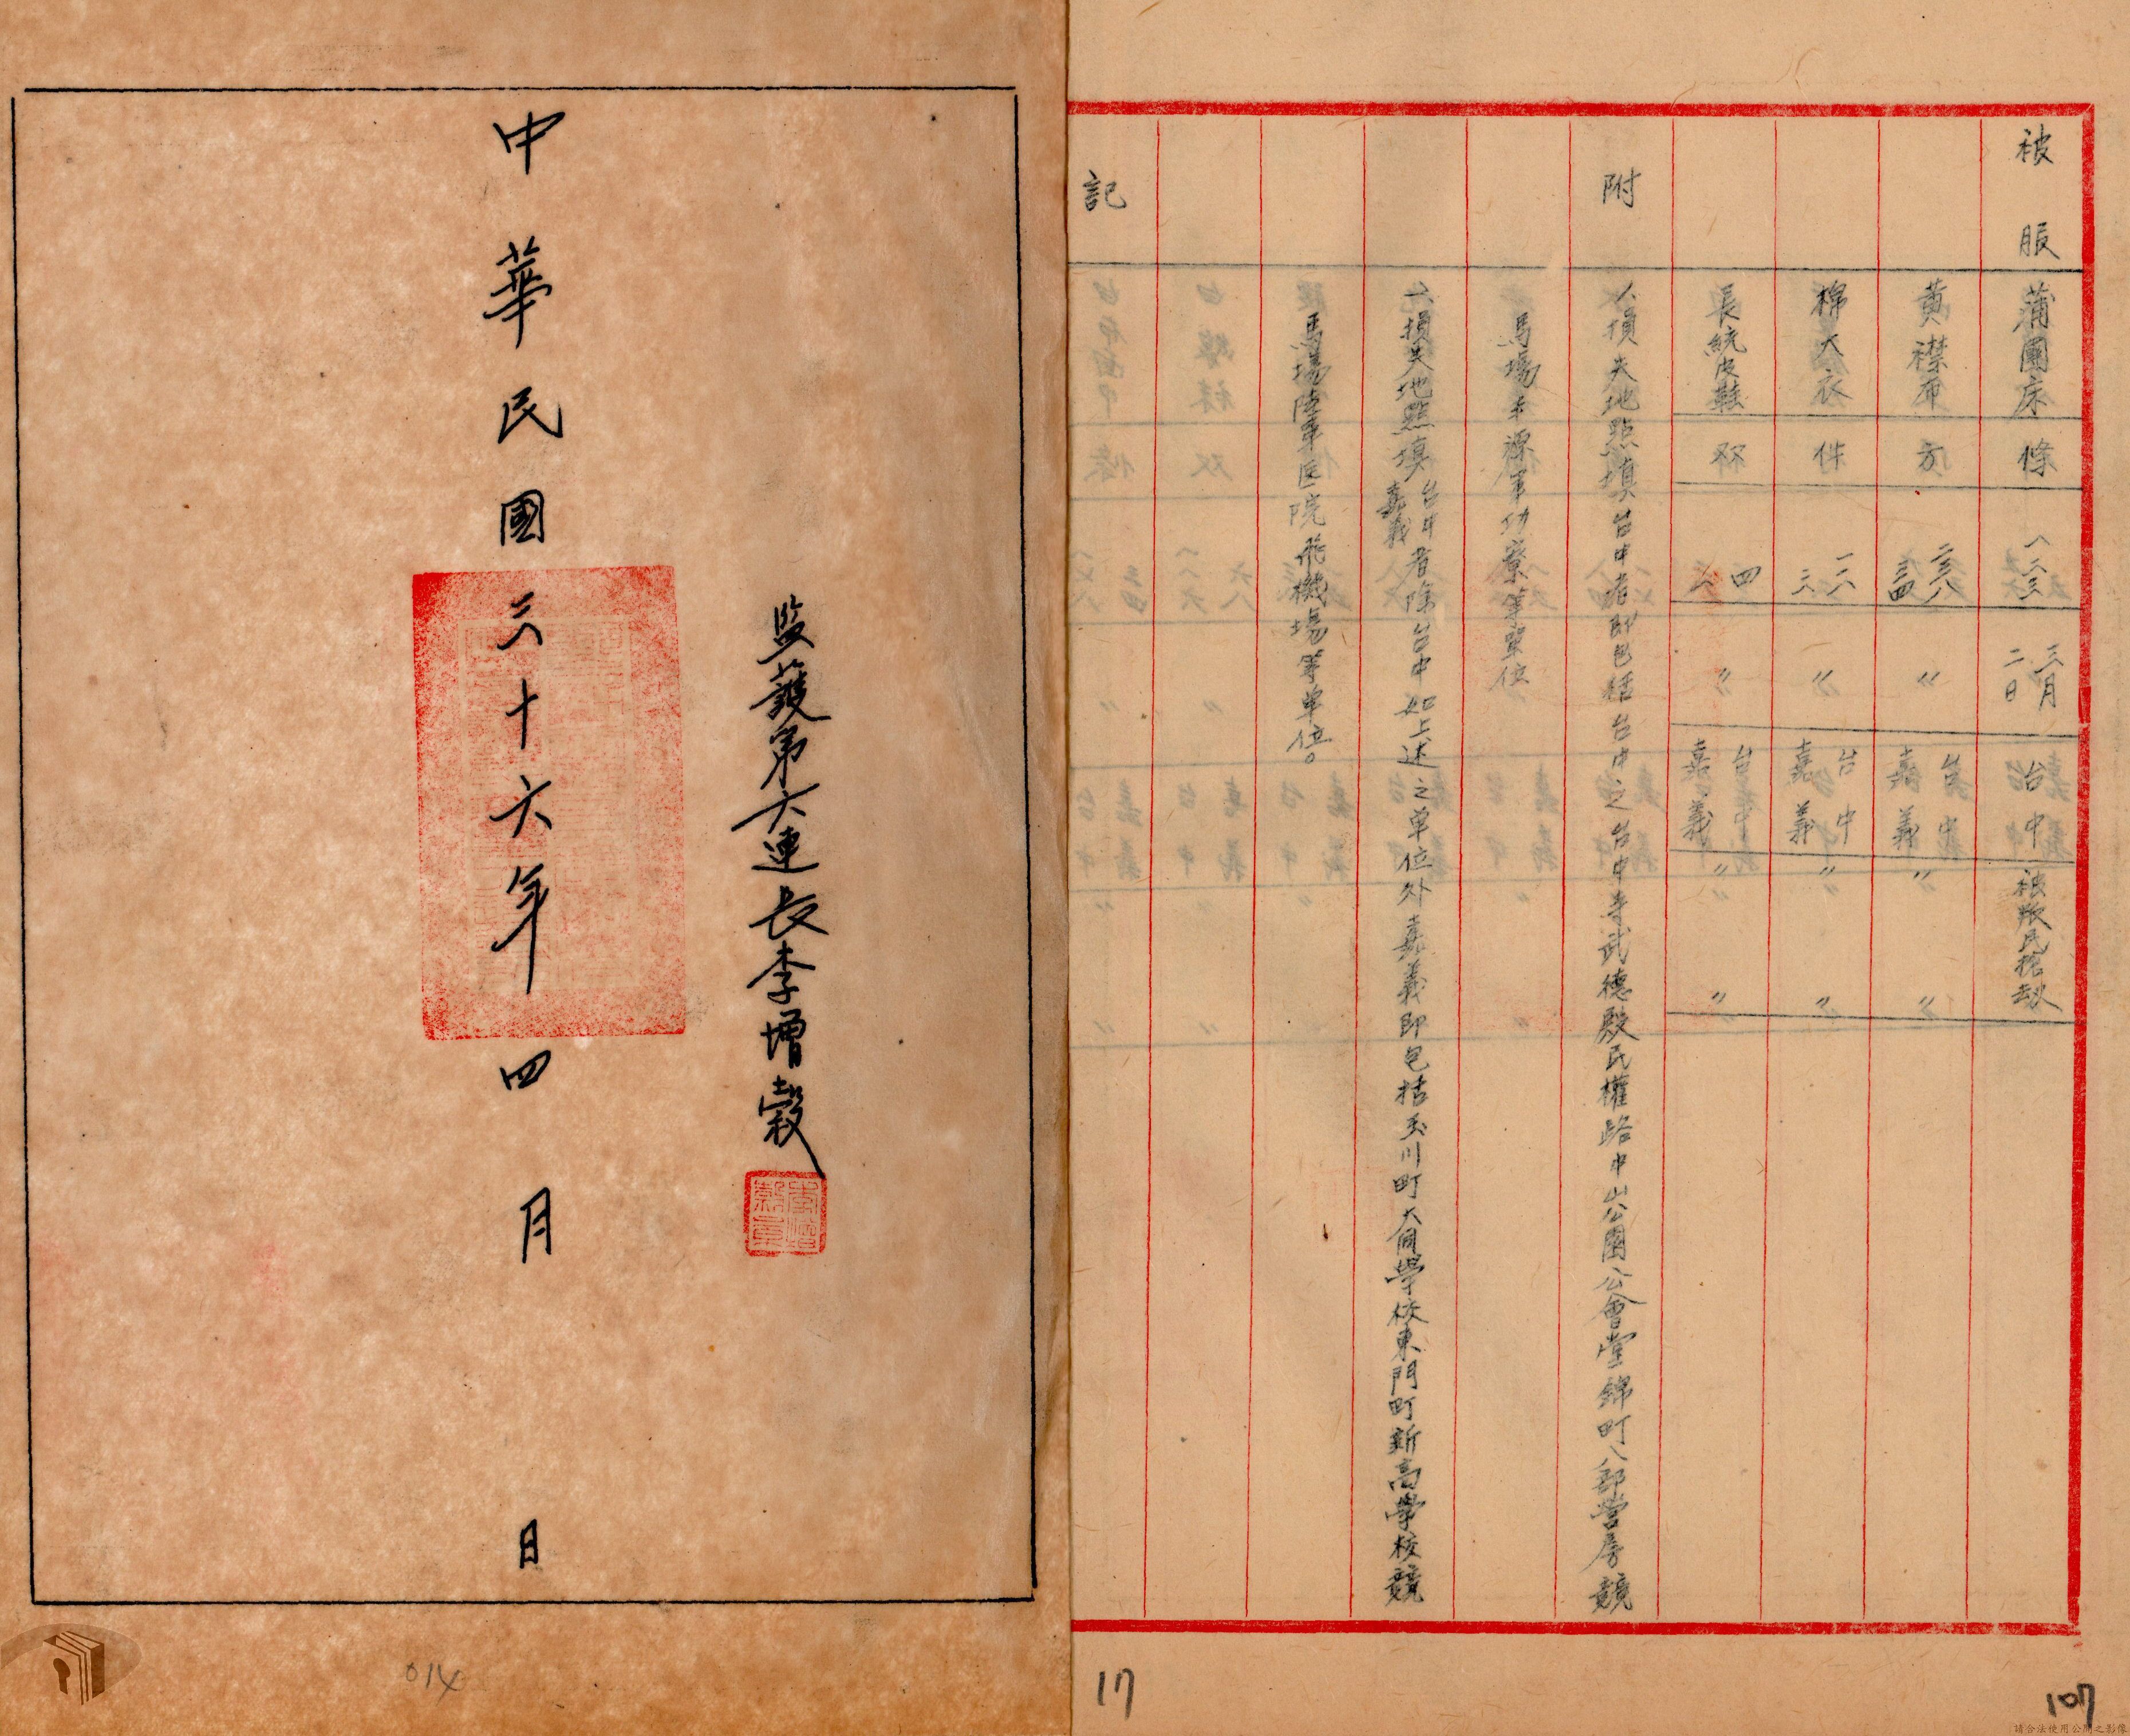 被服
蒲團床
條
一三三
三月二日
台中
被服民搶劫
黃襟布
方
二三八
三四
〃
台中
嘉義
〃
〃
棉大衣
件
一六
三
〃
台中
嘉義
〃
〃
長統皮鞋
双
四
六
〃
台中
嘉義
〃
〃
附
記
八損失地點填台中者即包括台中之台中寺武德殿民權路中山公園公會堂錦町八部營房競
馬場干源軍功寮等單位
六損失地點填台中嘉義者除台中如上述之單位外嘉義即包括玉川町大同學校東門町新高學校競
馬場陸軍医院飛機場等單位。
監護第六連長李增穀
中華民國三十六年四月 日
014
17
107
請合法使用公開之影像